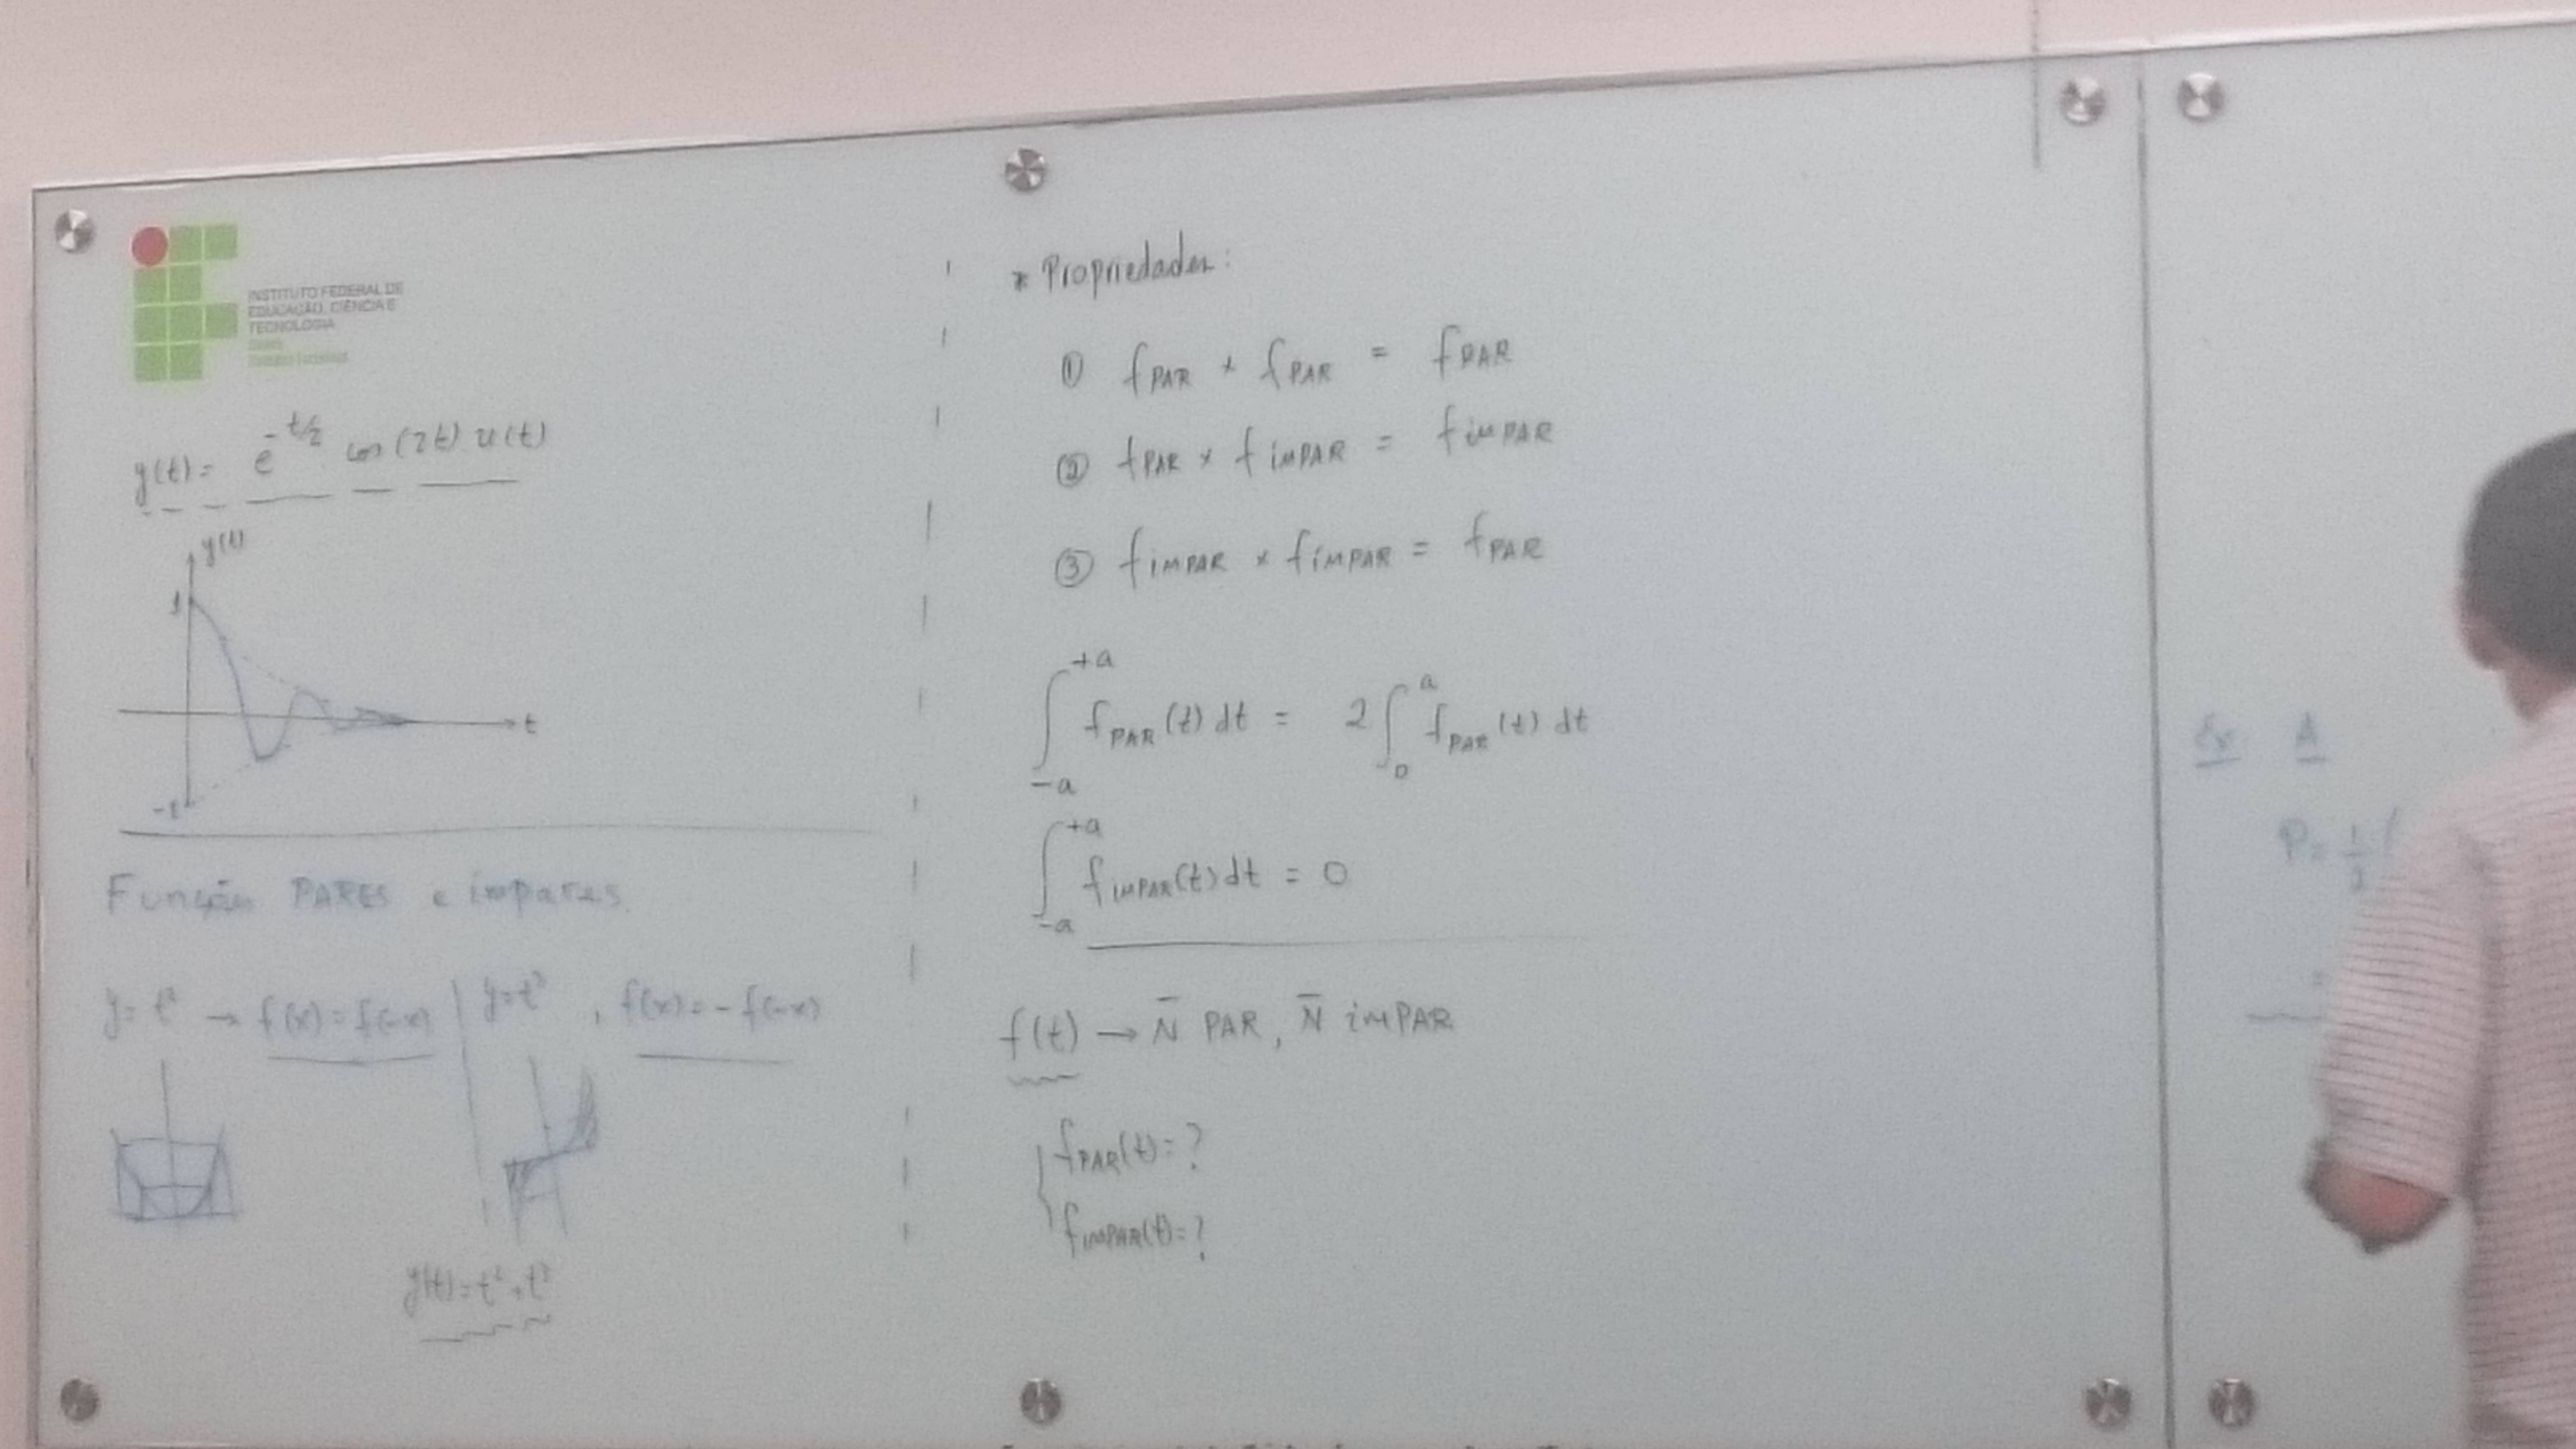 INSTITUTO FEDERAL DE
EDUCAÇÃO, CIÊNCIA E
TECNOLOGIA
y(t) = e^{-t/2} cos(2t) u(t)
y(t)
1
t
-1
Funções PARES e ímpares
y = t² → f(x) = f(-x) | y = t³, f(x) = -f(-x)
y(t) = t² + t³
* Propriedades:
① f PAR × f PAR = f PAR
② f PAR × f ímPAR = f ímPAR
③ f ímPAR × f ímPAR = f PAR
∫_{-a}^{+a} f PAR (t) dt = 2 ∫_0^a f PAR (t) dt
∫_{-a}^{+a} f ímPAR (t) dt = 0
f(t) → N̄ PAR, N̄ ímPAR
f PAR (t) = ?
f ímPAR (t) = ?
Ex A
P = 1/2
=